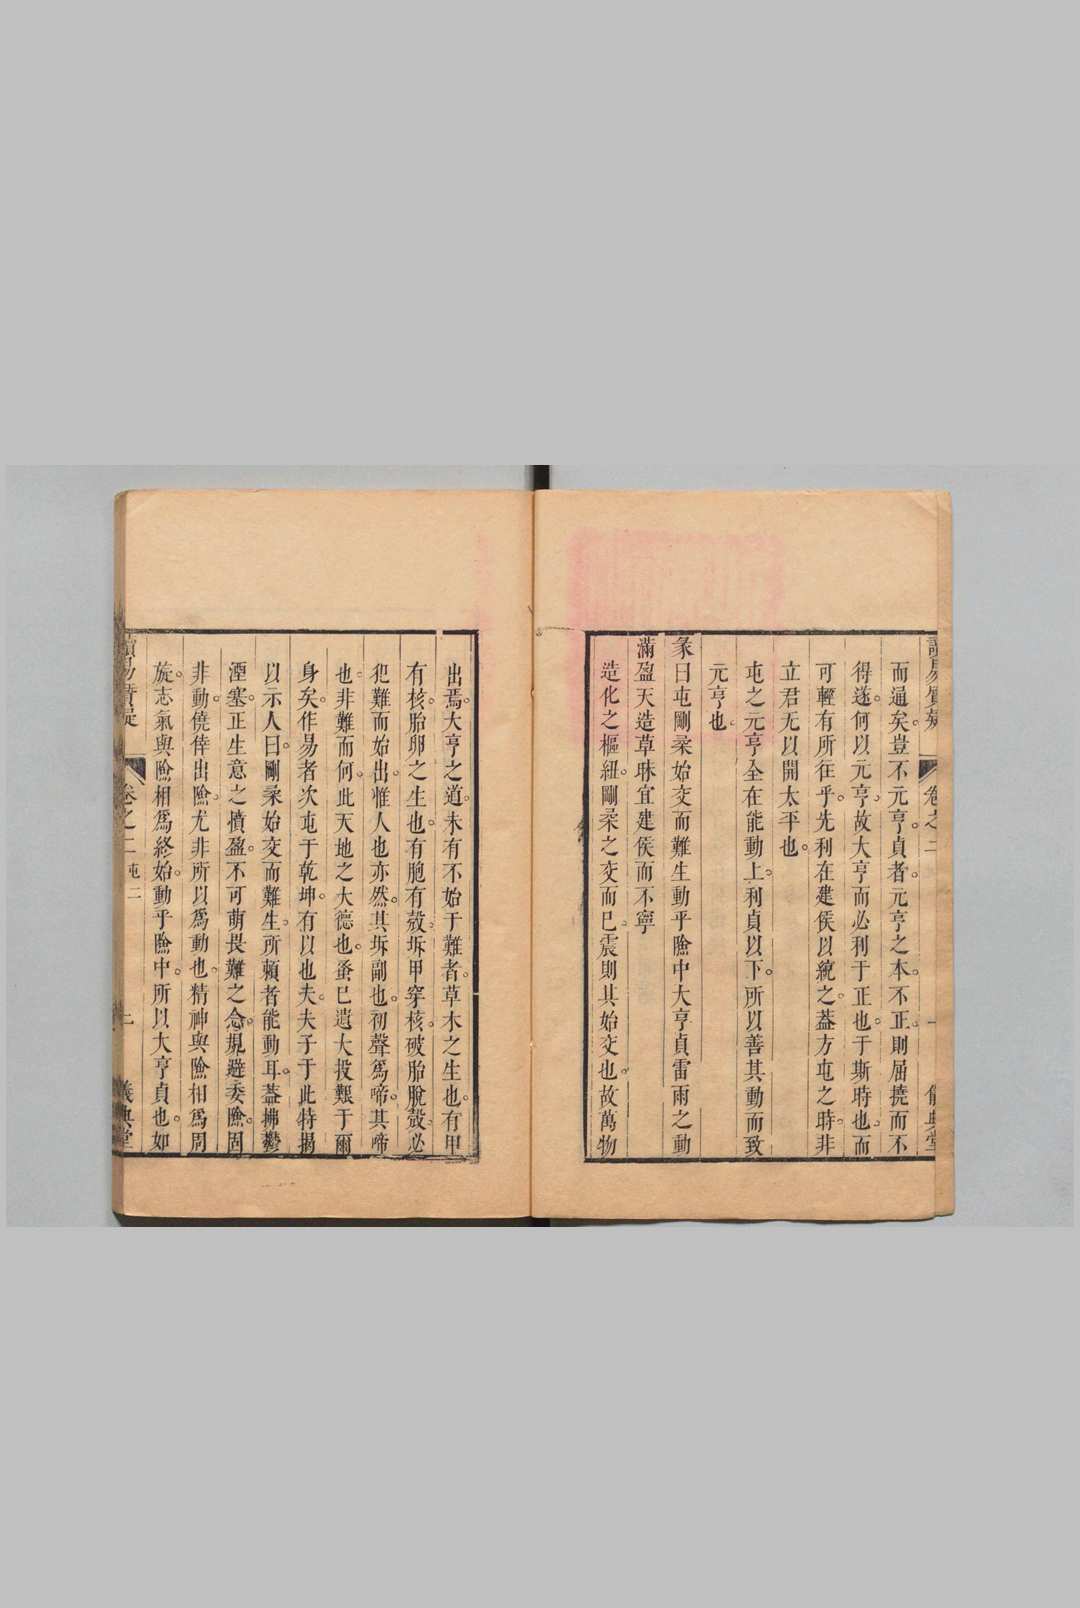 而通矣豈不元亨貞者元亨之本不正則屈撓而不
得遂何以元亨故大亨而必利于正也于斯時也而
可輕有所往乎先利在建侯以統之蓋方屯之時非
立君无以開太平也
屯之元亨全在能動上利貞以下所以善其動而致
元亨也
彖曰屯剛柔始交而難生動乎險中大亨貞雷雨之動
滿盈天造草昧宜建侯而不寧
造化之樞紐剛柔之交而已震則其始交也故萬物
出焉大亨之道未有不始于難者草木之生也有甲
有核胎卵之生也有胞有殼坼甲穿核破胎脫殼必
犯難而始出惟人也亦然其坼副也初聲為啼其啼
也非難而何此天地之大德也蚤已遺大投艱于爾
身矣作易者次屯于乾坤有以也夫夫子于此特揭
以示人曰剛柔始交而難生所賴者能動耳蓋拂鬱
湮塞正生意之憤盈不可萌畏難之念規避委險固
非動僥倖出險尤非所以為動也精神與險相為周
旋志氣與險相為終始動乎險中所以大亨貞也如
讀易質疑 卷之二 屯 二 二 儀典堂